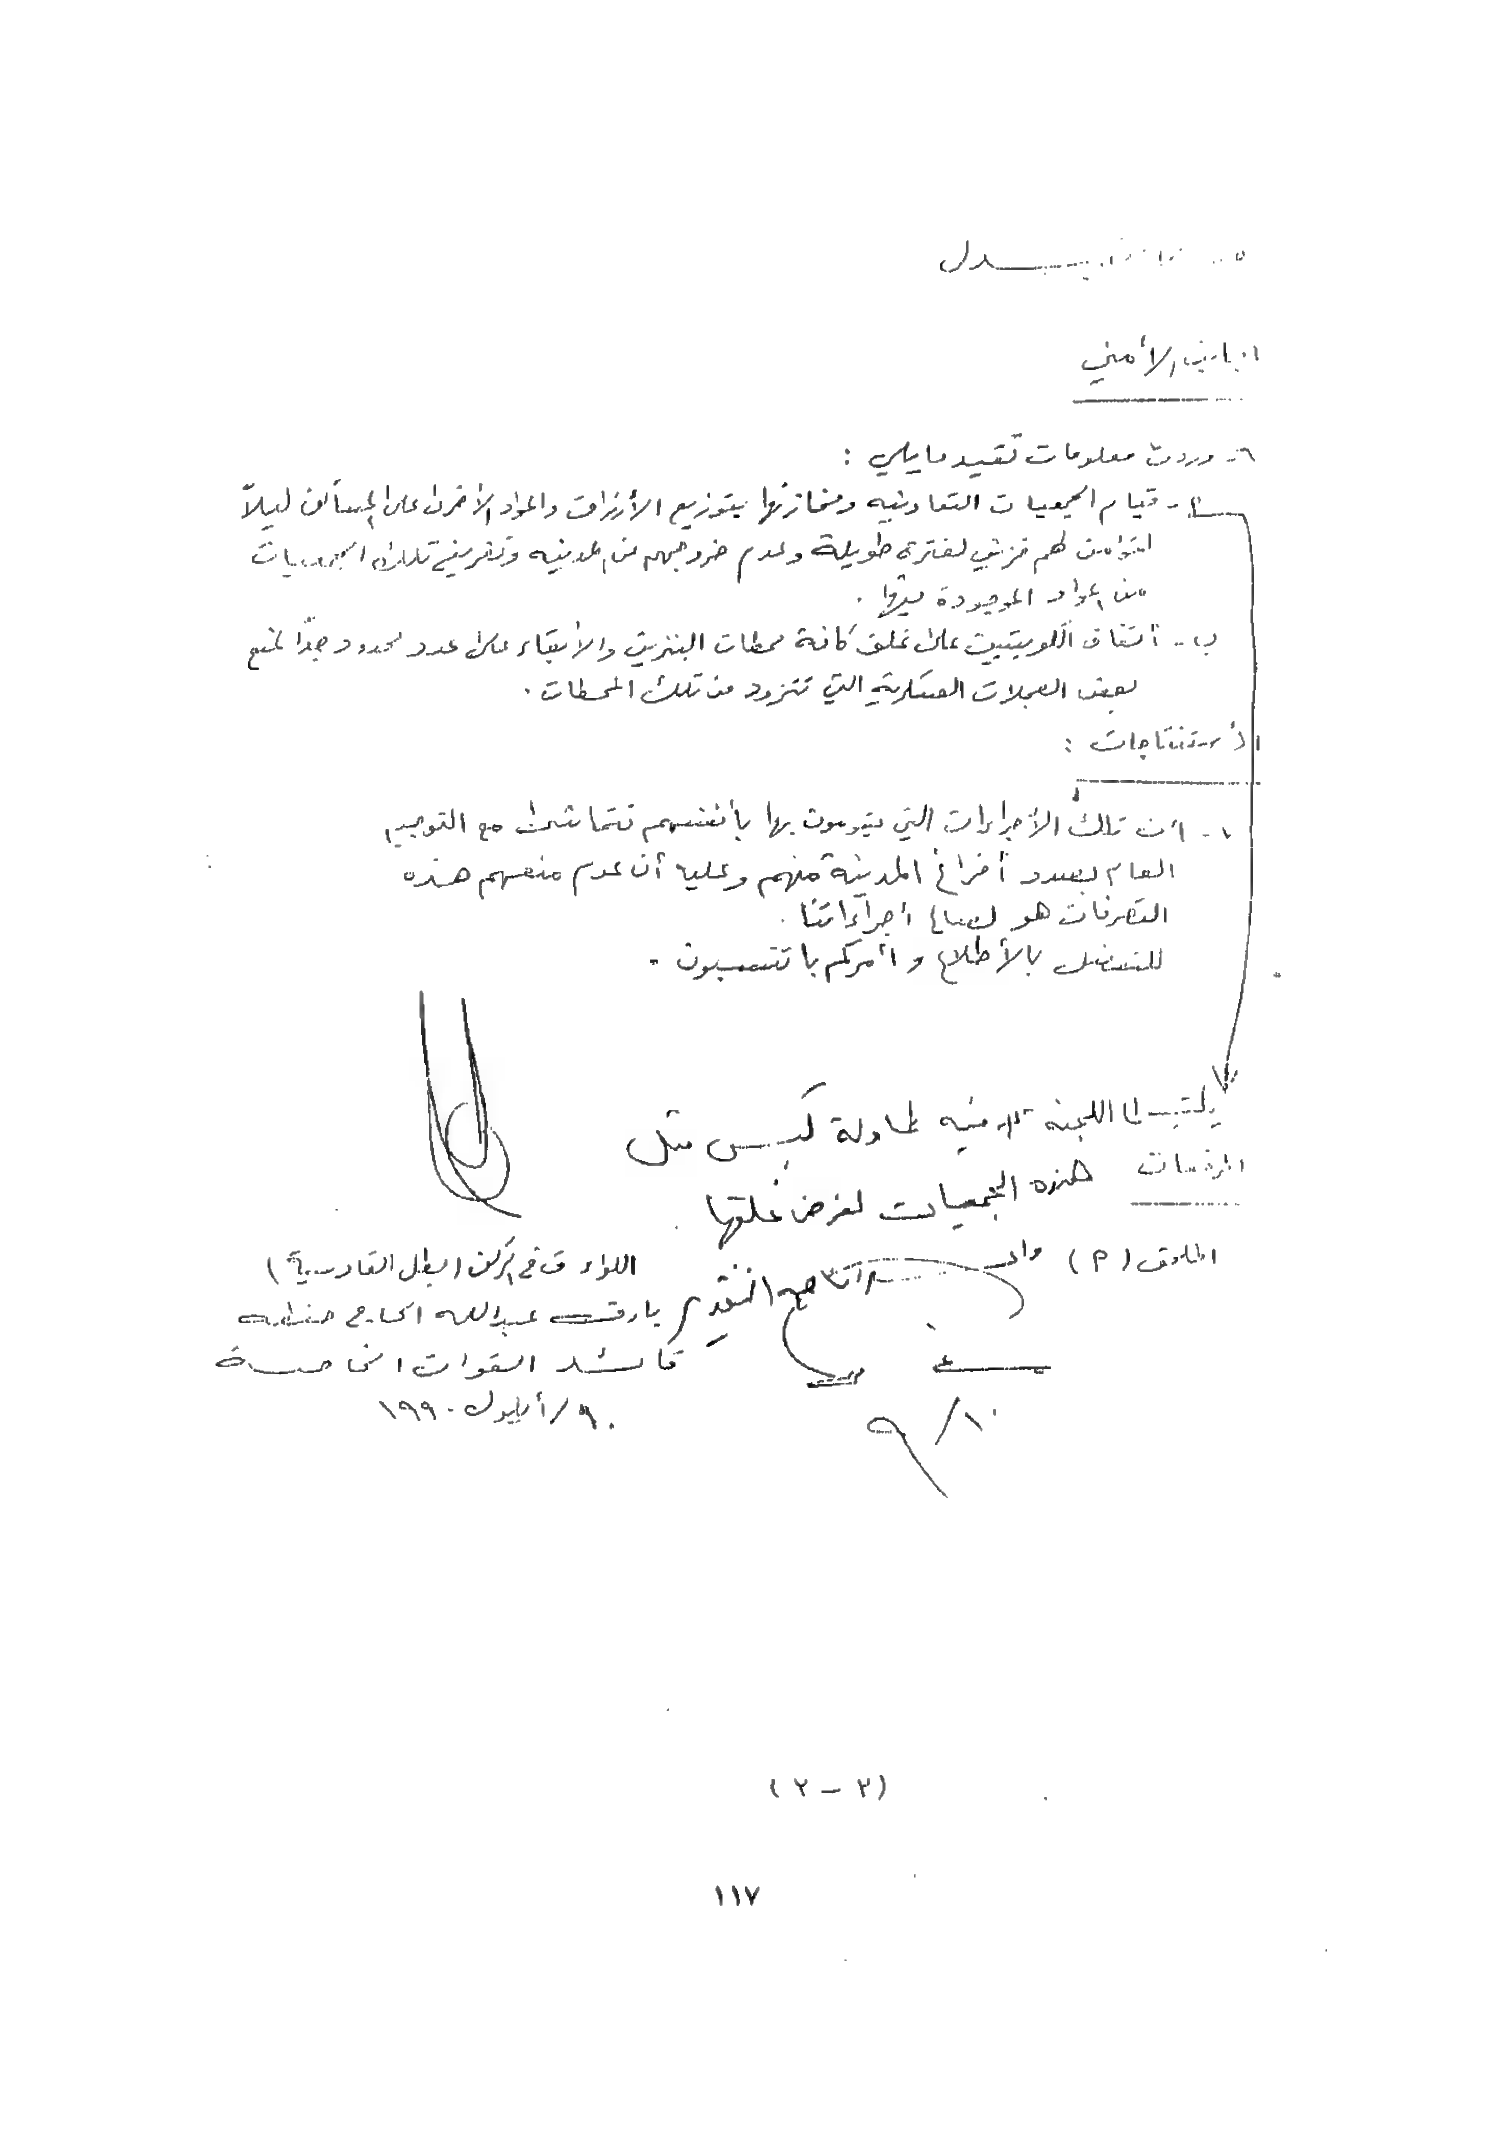 الجانب الأمني
٦- وردت معلومات تفيد مايلي :
أ- قيام الجمعيات التعاونيه ومخازنها بتوزيع الأرزاق والمواد الأخرى على المساكن ليلاً
لتؤمن لهم خزين لفترة طويلة وعدم خروجهم من المدينه وتفريغ تلك الجمعيات
من المواد الموجودة فيها .
ب- أتفاق الكويتيين على غلق كافة محطات البنزين والأبقاء على عدد محدود جداً لمنع
بعض العجلات العسكرية التي تتزود من تلك المحطات .
الأستنتاجات :
١- أن تلك الأجراءات التي يقومون بها بأنفسهم تتماشى مع التوجيه
العام بصدد أفراغ المدينة منهم وعليه أن عدم منعهم هذه
التصرفات هو لصالح أجراءاتنا .
للتفضل بالأطلاع و أمركم با تنسبون .
يكتب الى اللجنة الأمنيه محاولة كبس مثل
هذه الجمعيات لغرض غلقها
المرفقات
الملحق ( م )
اللواء ق خ الركن ( بطل القادسية )
بارق عبدالله الحاج حنطه
قائد القوات الخاصة
٩٠/أيلول ١٩٩٠
٩/١٠
(٢ - ٢)
١١٧